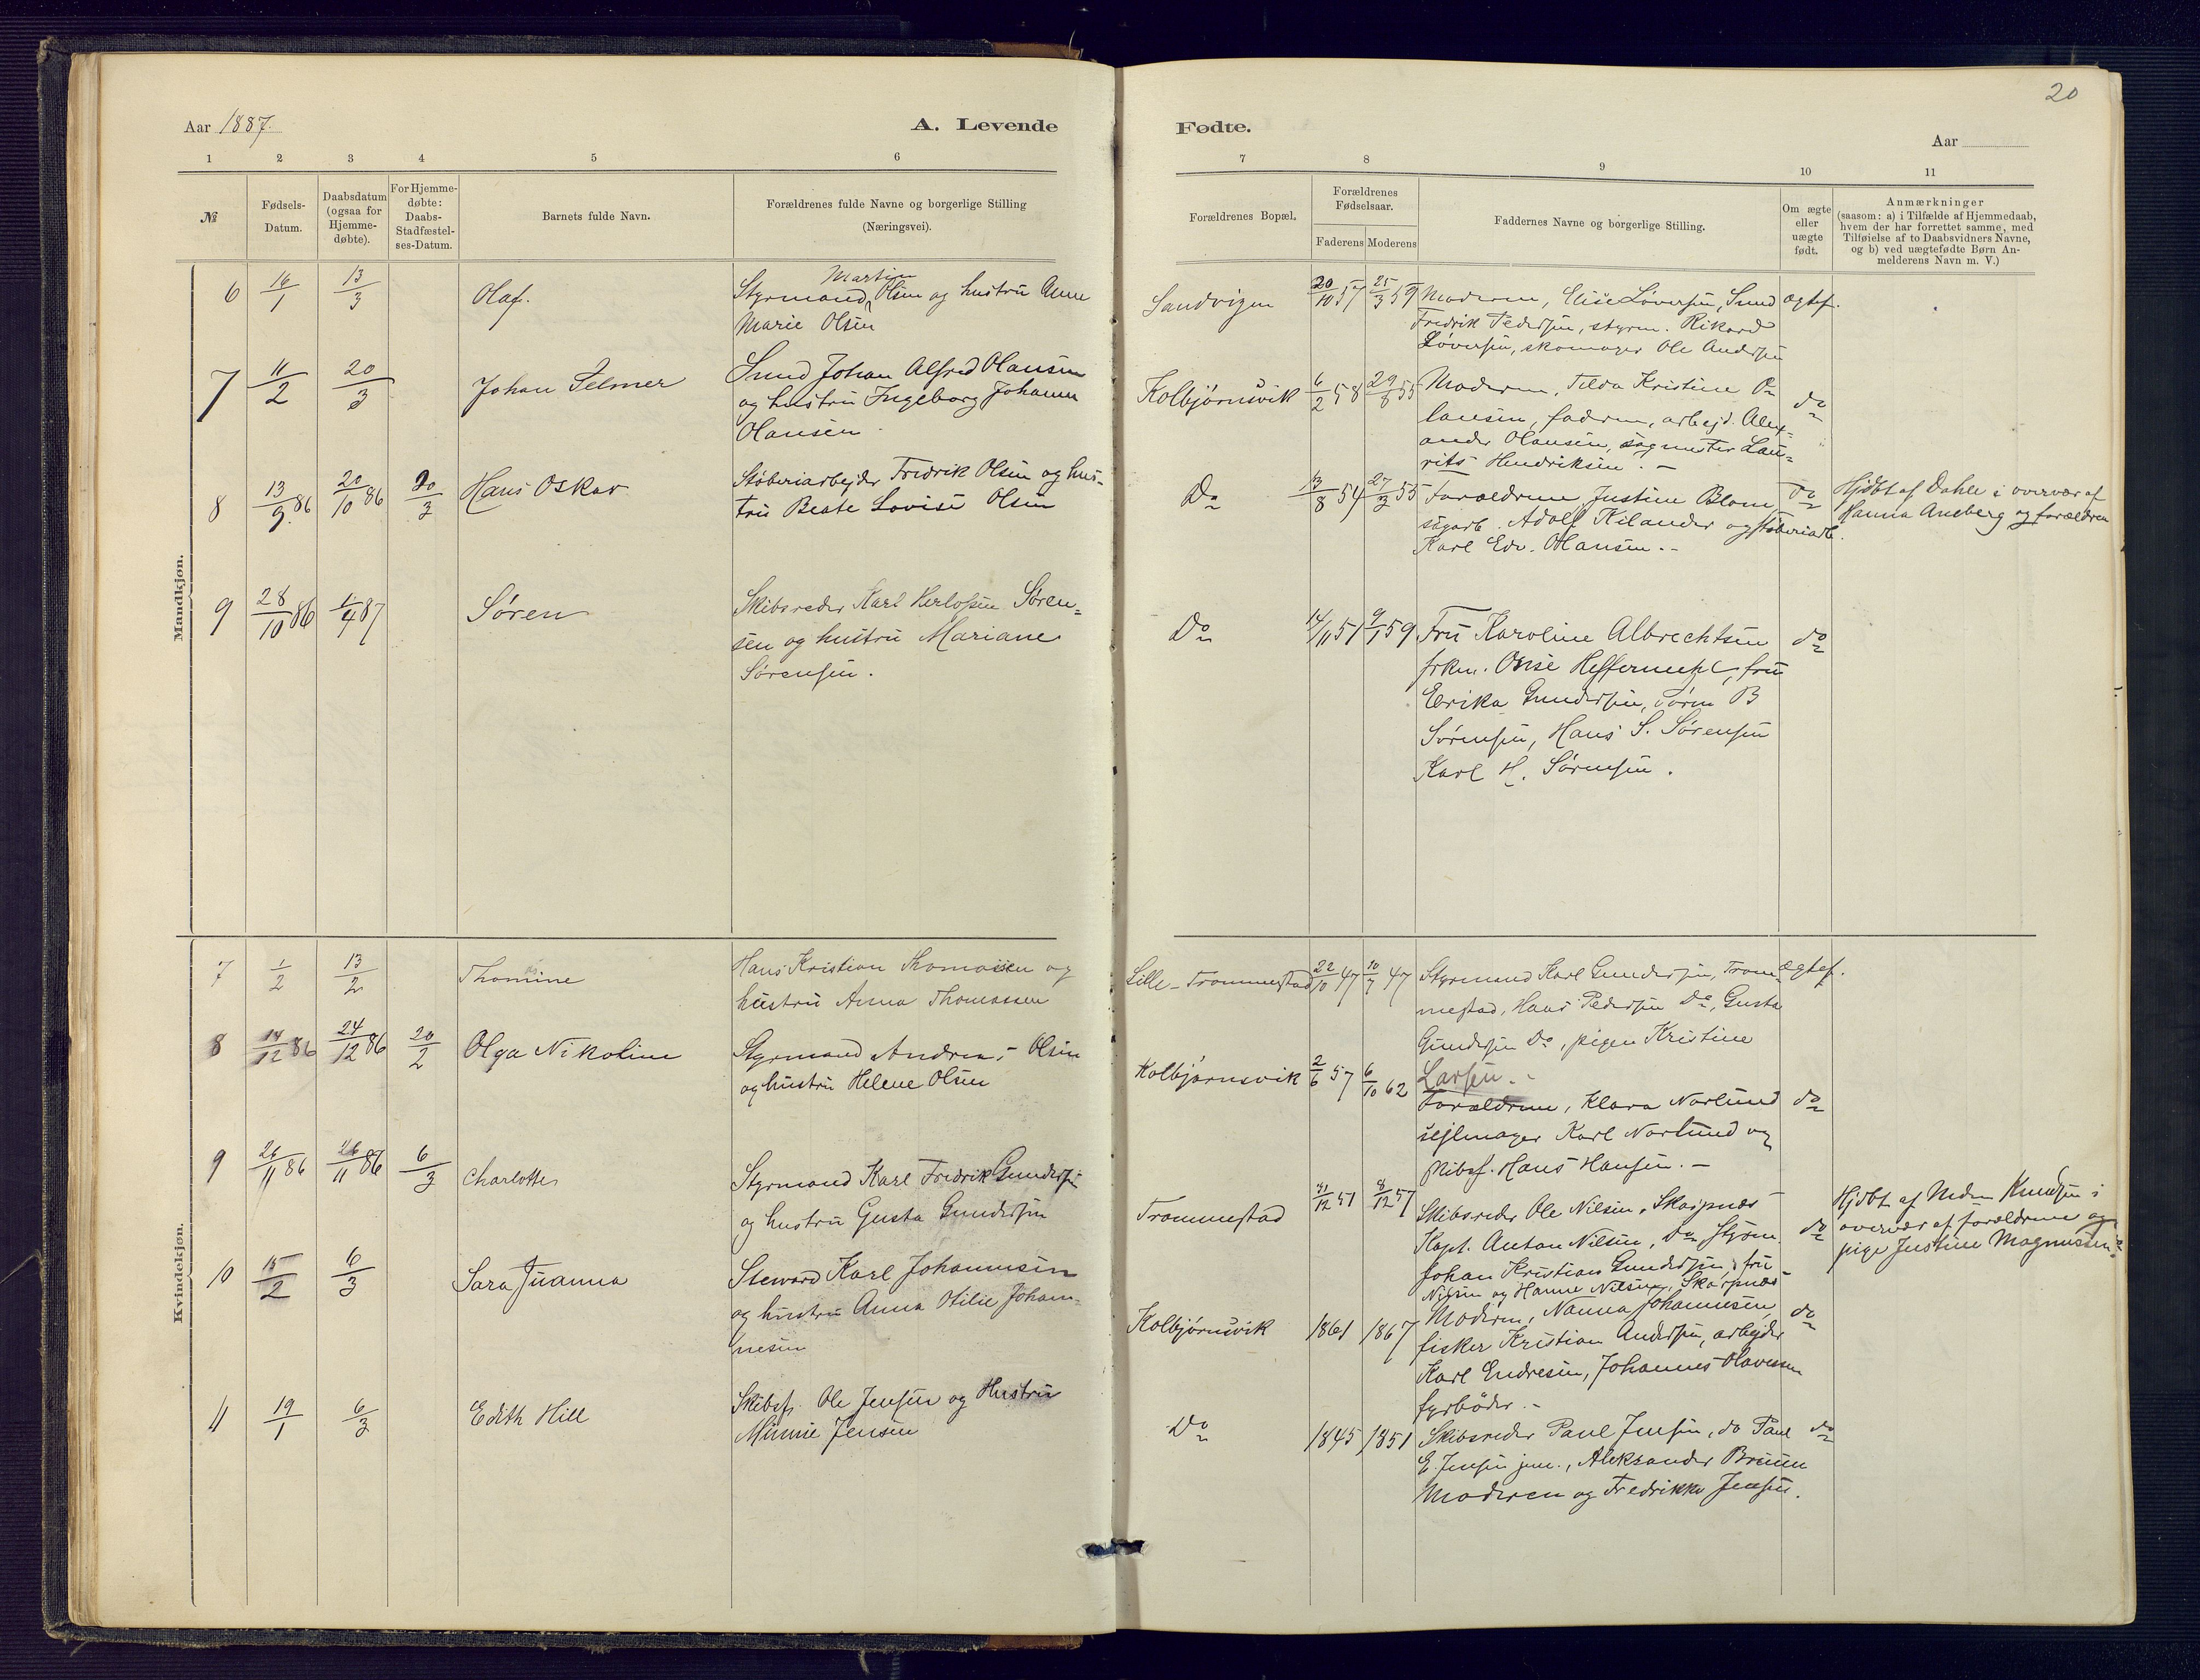 20
Aar 1887.
A. Levende
Fødte.
Aar
1 2 3 4 5 6 7 8 9 10 11
№
Fødsels-
Datum.
Daabsdatum
(ogsaa for
Hjemme-
døbte).
For Hjemme-
døbte:
Daabs-
Stadfæstel-
ses-Datum.
Barnets fulde Navn.
Forældrenes fulde Navne og borgerlige Stilling
(Næringsvei).
Forældrenes Bopæl.
Forældrenes
Fødselsaar.
Faderens Moderens
Faddernes Navne og borgerlige Stilling.
Om ægte
eller
uægte
født.
Anmærkninger
(saasom: a) i Tilfælde af Hjemmedaab,
hvem der har forrettet samme, med
Tilføielse af to Daabsvidners Navne,
og b) ved uægtefødte Børn An-
melderens Navn m. V.)
Mandkjøn.
6 16/1 13/3 Olaf.
Martin
Styrmand Olsen og hustru Anne
Marie Olsen
Sandvigen 20/10 57 25/3 59
Moderen, Elise Løversen, Smed
Fredrik Pedersen, styrm. Rikard
Løversen, skomager Ole Andersen
ægtef.
7 11/2 20/3 Johan Selmer
Smed Johan Alfred Olausen
og hustru Ingeborg Johanne
Olausen
Kolbjørnsvik 6/2 58 29/8 55
Moderen, Tilda Kristine O=
lausen, faderen, arbejd. Alex=
ander Olausen, sagmester Lau=
rits Hendriksen. -
do
8 13/9 86 20/10 86 20/3 Hans Oskar
Støberiarbejder Fredrik Olsen og hus=
tru Beate Lovise Olsen
Do 13/8 54 27/3 55
Forældrene, Justine Blom
sagarb. Adolf Kilander og støberiarb.
Karl Edv. Olausen. -
do
Hjdbt af Dahle i overvær af
Hanna Aneberg og forældren
9 28/10 86 1/4 87 Søren
Skibsreder Karl Herlofsen Søren=
sen og hustru Mariane
Sørensen.
Do 14/11 51 9/1 59
Fru Karoline Albrechtsen
frkn. Onse Heffermehl, fru
Erika Gundersen, Søren B
Sørensen, Hans S. Sørensen
Karl H. Sørensen.
do
Kvindekjøn.
7 1/2 13/2 Thomine
Hans Kristian Thomassen og
hustru Anna Thomassen
Lille-Trommestad 22/10 47 10/7 47
Styrmand Karl Gundersen, Trom=
mestad, Hans Pedersen Do, Gusta
Gundersen Do, pigen Kristine
Larsen. -
ægtef.
8 14/12 86 24/12 86 20/2 Olga Nikoline
Styrmand Andreas Olsen
og hustru Helene Olsen
Kolbjørnsvik 2/6 57 6/10 62
Forældrene, Klara Norlund
sejlmager Karl Norlund og
skibsf. Hans Hansen. -
do
9 26/11 86 26/11 86 6/3 Charlotte
Styrmand Karl Fredrik Gundersen
og hustru Gusta Gundersen
Trommestad 31/12 51 8/12 57
Skibsreder Ole Nilsen, Skarpnæs
Kapt. Anton Nilsen, Do, styrm.
Johan Kristian Gundersen, fru
Nilsen og Hanne Nilsen, Skarpnæs
do
Hjdbt af Knudsen i
overvær af forældrene og
pige Justine Magnussen
10 15/2 6/3 Sara Juanna
Steward Karl Johannesen
og hustru Anna Otilie Johan=
nesen
Kolbjørnsvik 1861 1867
Moderen, Nanna Johannesen,
fisker Kristian Andersen, arbejder
Karl Endresen, Johannes Olavesen
fyrbøder. -
do
11 19/1 6/3 Edith Hill
Skibsf. Ole Jensen og Hustru
Minnie Jensen
Do 1845 1851
Skibsreder Paul Jensen, do Paul
E. Jensen jun., Aleksander Bruun
Moderen og Fredrikke Jensen.
do